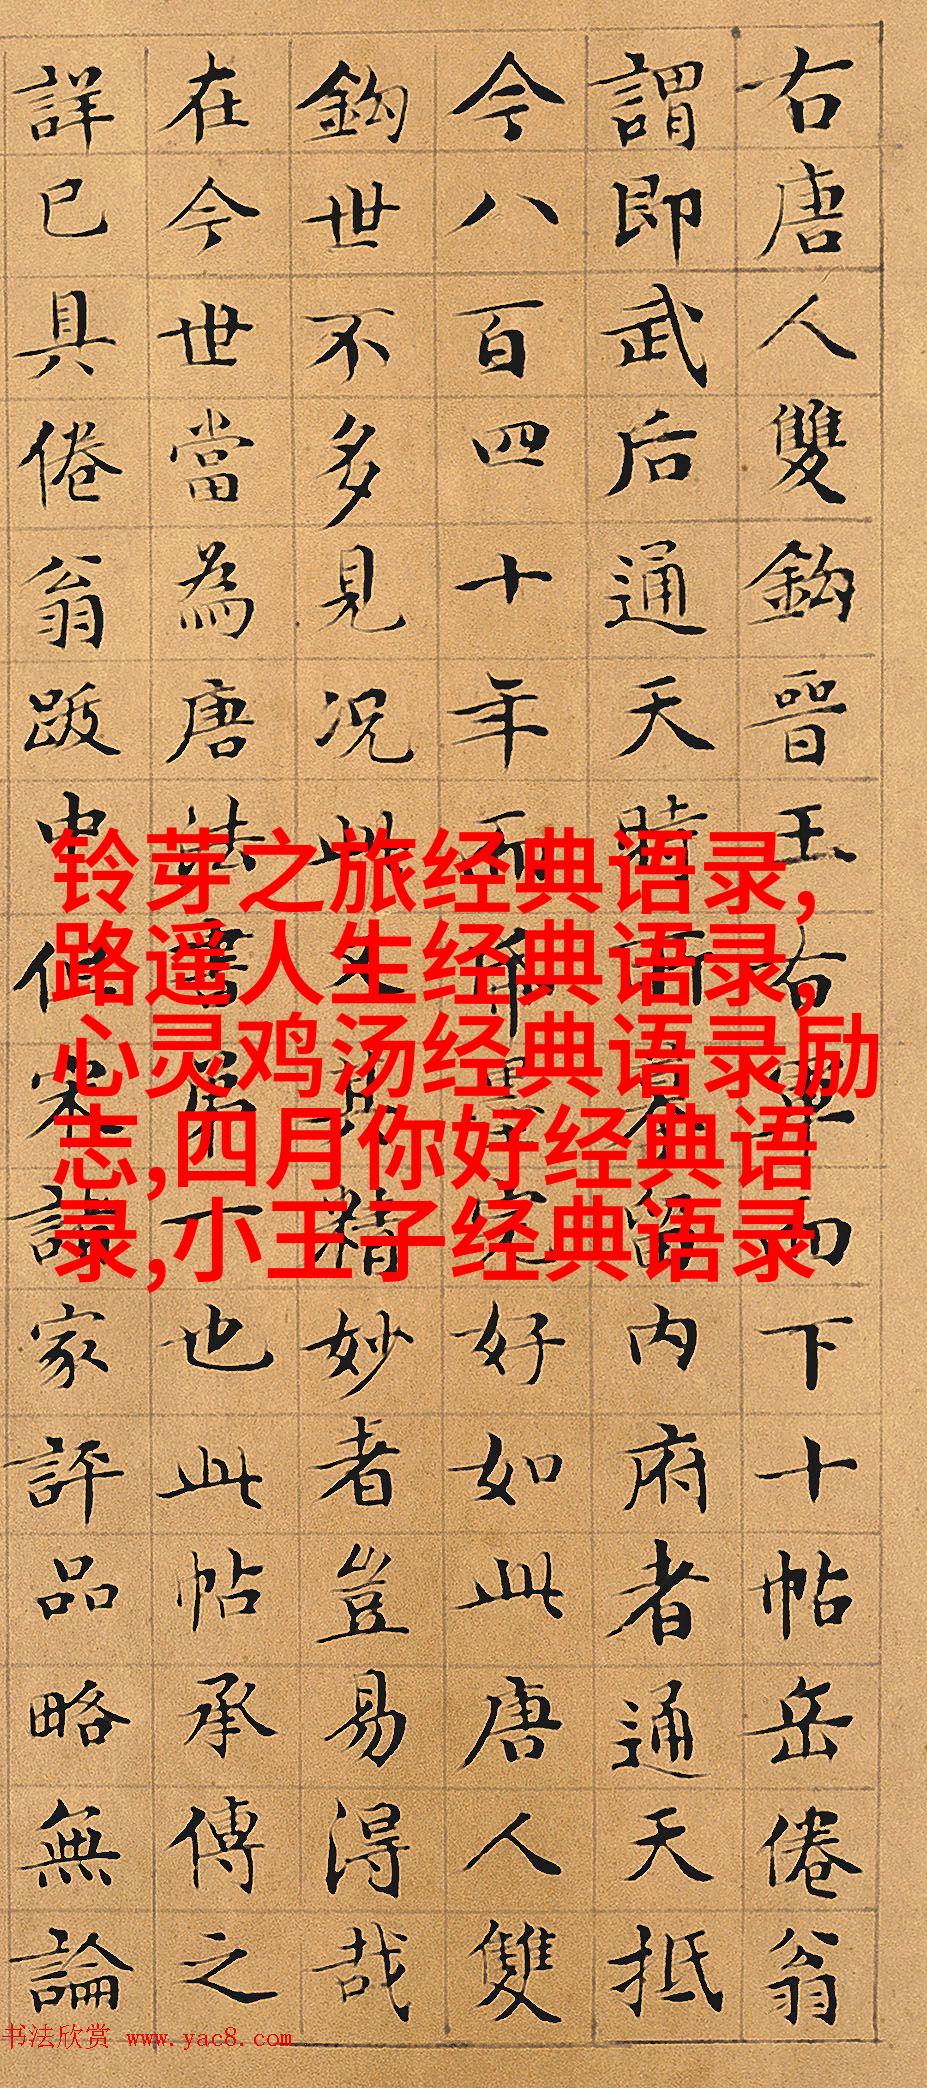 右唐人雙鈎晉王右軍而下十帖岳倦翁
謂即武后通天時所摹留內府者通天抵
今八百四十年而帋墨完好如此唐人雙
鈎世不多見況此又其精妙者豈易得哉
在今世當為唐法書第一也此帖承傳之
詳已具倦翁跋中宋諸家評品略無論
铃芽之旅经典语录,
路遥人生经典语录,
心灵鸡汤经典语录励
志,四月你好经典语
录,小王子经典语录
书法欣赏 www.yac8.com